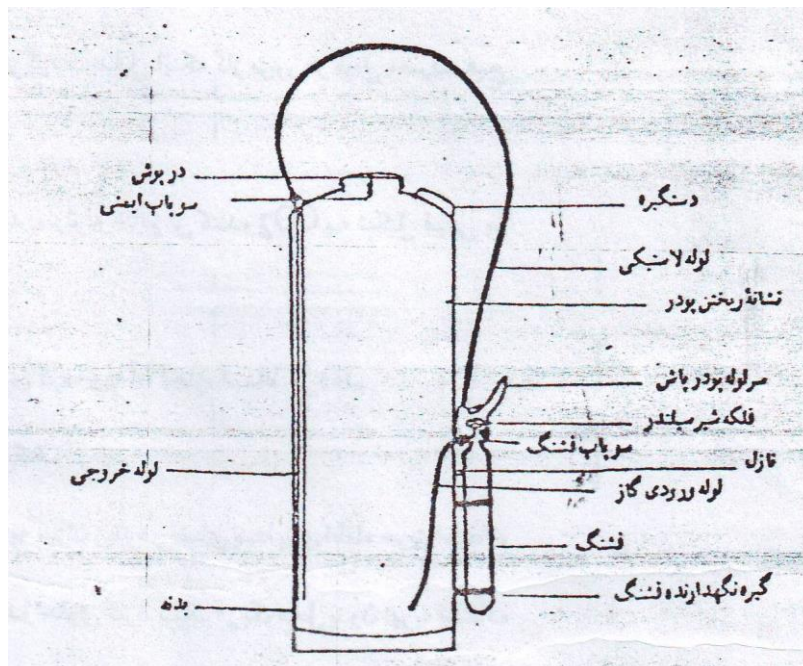 درپوش
سوپاپ ایمنی
دستگیره
لوله لاستیکی
نشانهٔ ریختن پودر
سرلوله پودر پاش
فلکه شیر سیلندر
سوپاپ فشنگ
نازل
لوله ورودی گاز
لوله خروجی
فشنگ
گیره نگهدارنده فشنگ
بدنه